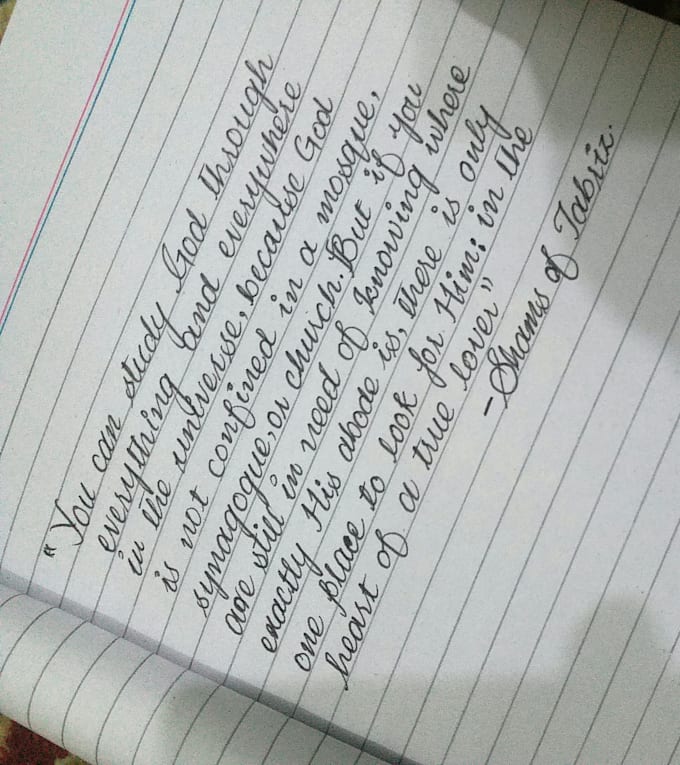 "You can study God through
everything and everywhere
in the universe, because God
is not confined in a mosque,
synagogue, or church. But if you
are still in need of knowing where
exactly His abode is, there is only
one place to look for Him: in the
heart of a true lover"
- Shams of Tabriz.